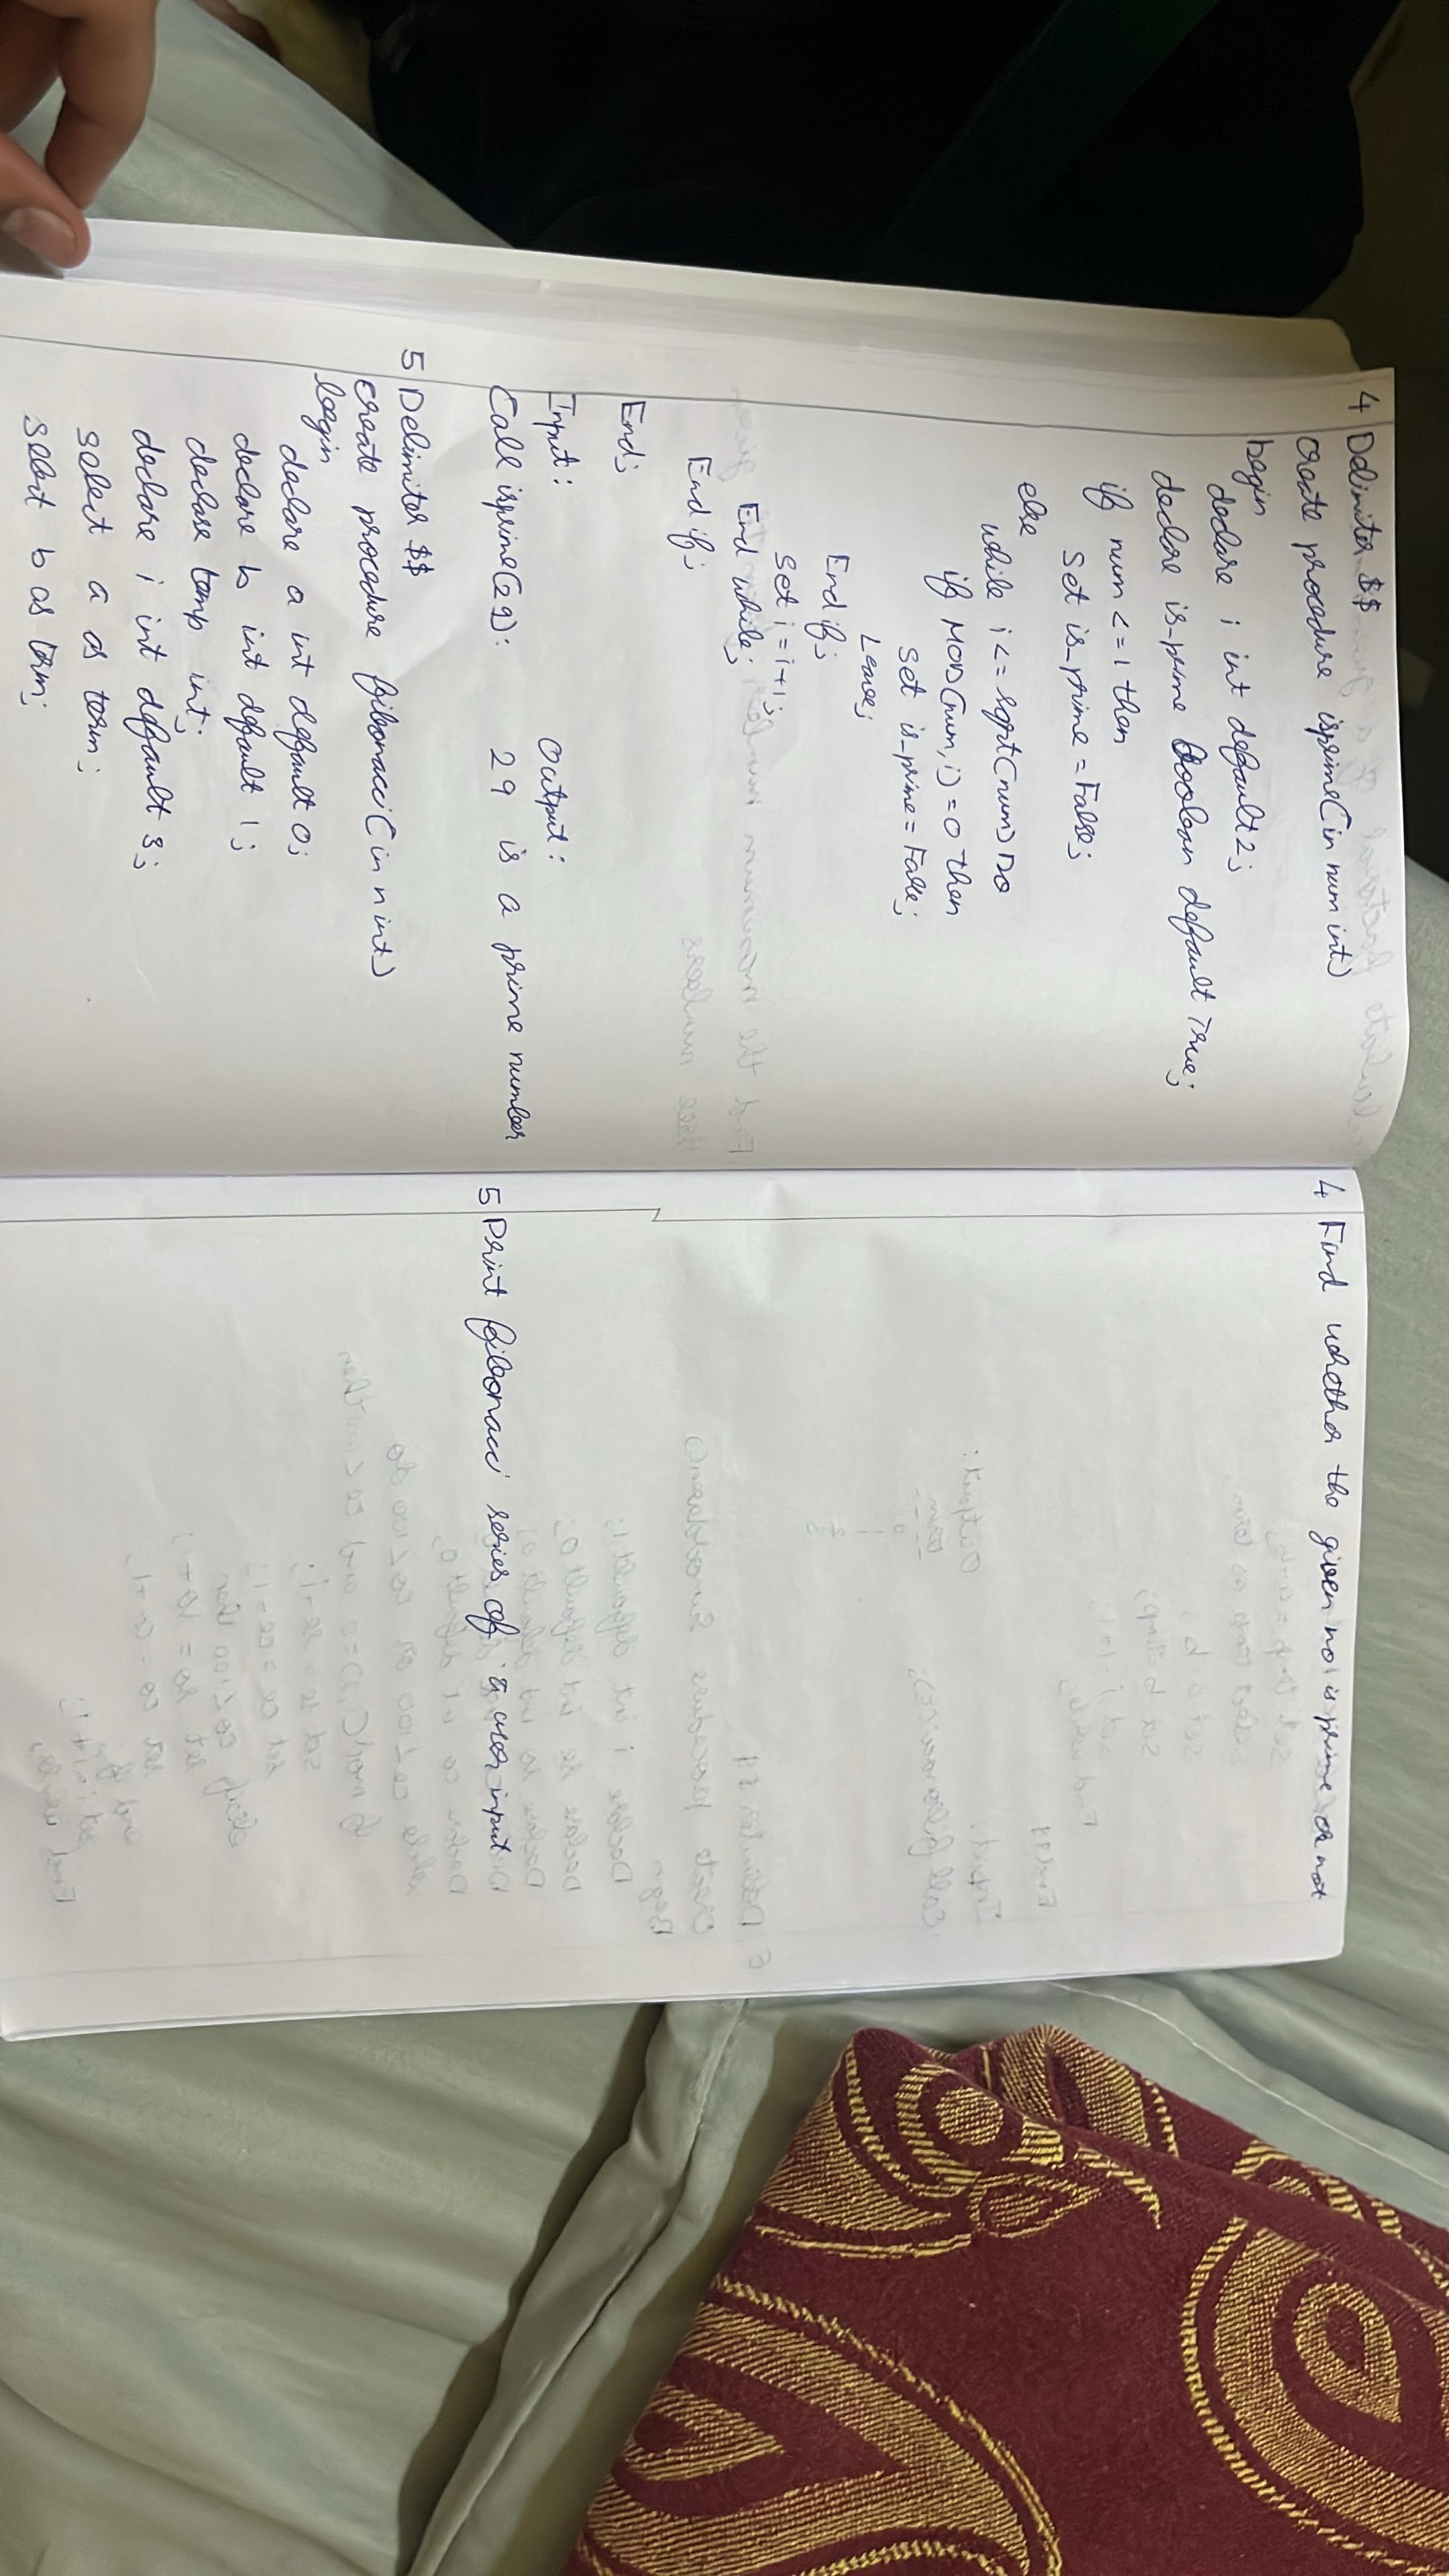 4 Delimiter $$
create procedure isprime(in num int)
begin
declare i int default 2;
declare is_prime Boolean default True;
if num <= 1 then
Set is_prime = False;
else
while i <= sqrt(num) DO
if MOD(num, i) = 0 then
Set is_prime = False;
Leave;
End if;
Set i = i+1;
End while;
End if;
End;
Input: Output:
Call isprime(29): 29 is a prime number
5 Delimiter $$
create procedure fibonacci(in n int)
begin
declare a int default 0;
declare b int default 1;
declare temp int;
declare i int default 3;
select a as term;
select b as term;
4 Find whether the given no is prime or not
5 Print fibonacci series of a user input